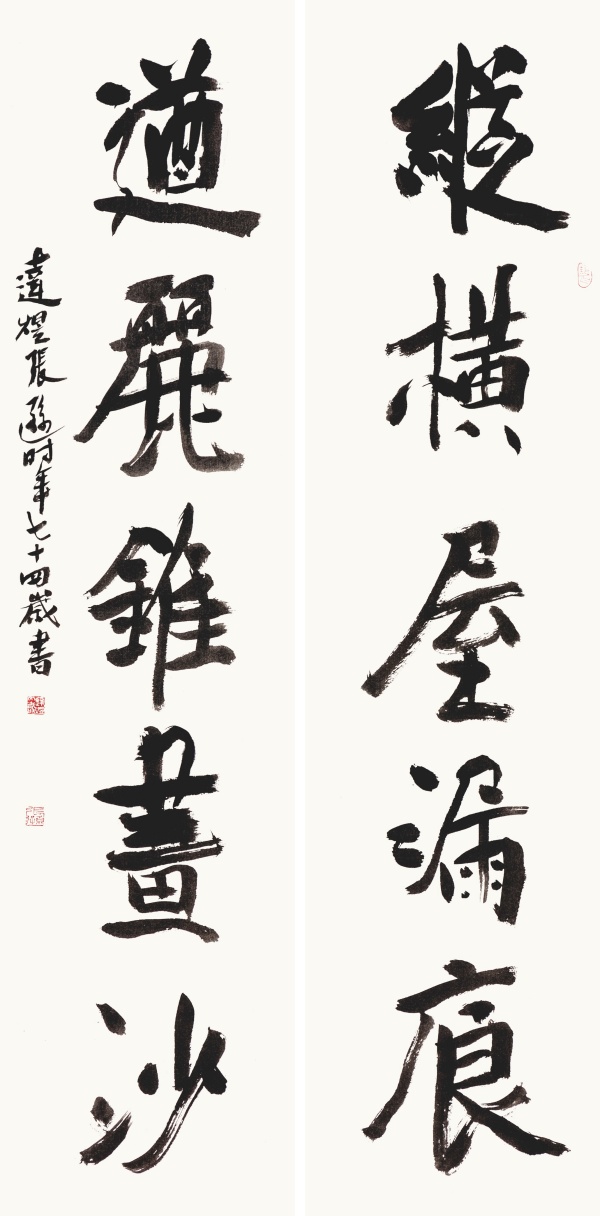 縱橫屋漏痕
遒麗錐畫沙
張 时年七十四歲書